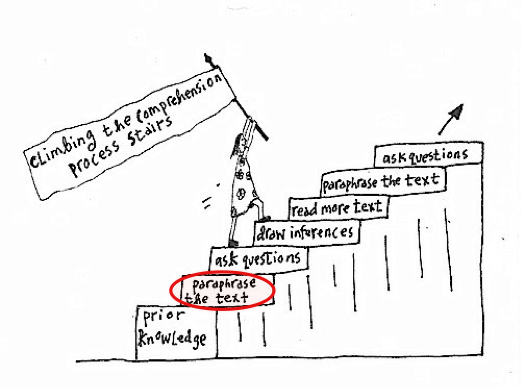 climbing the comprehension
process stairs
ask questions
paraphrase the text
read more text
draw inferences
ask questions
paraphrase
the text
prior
knowledge